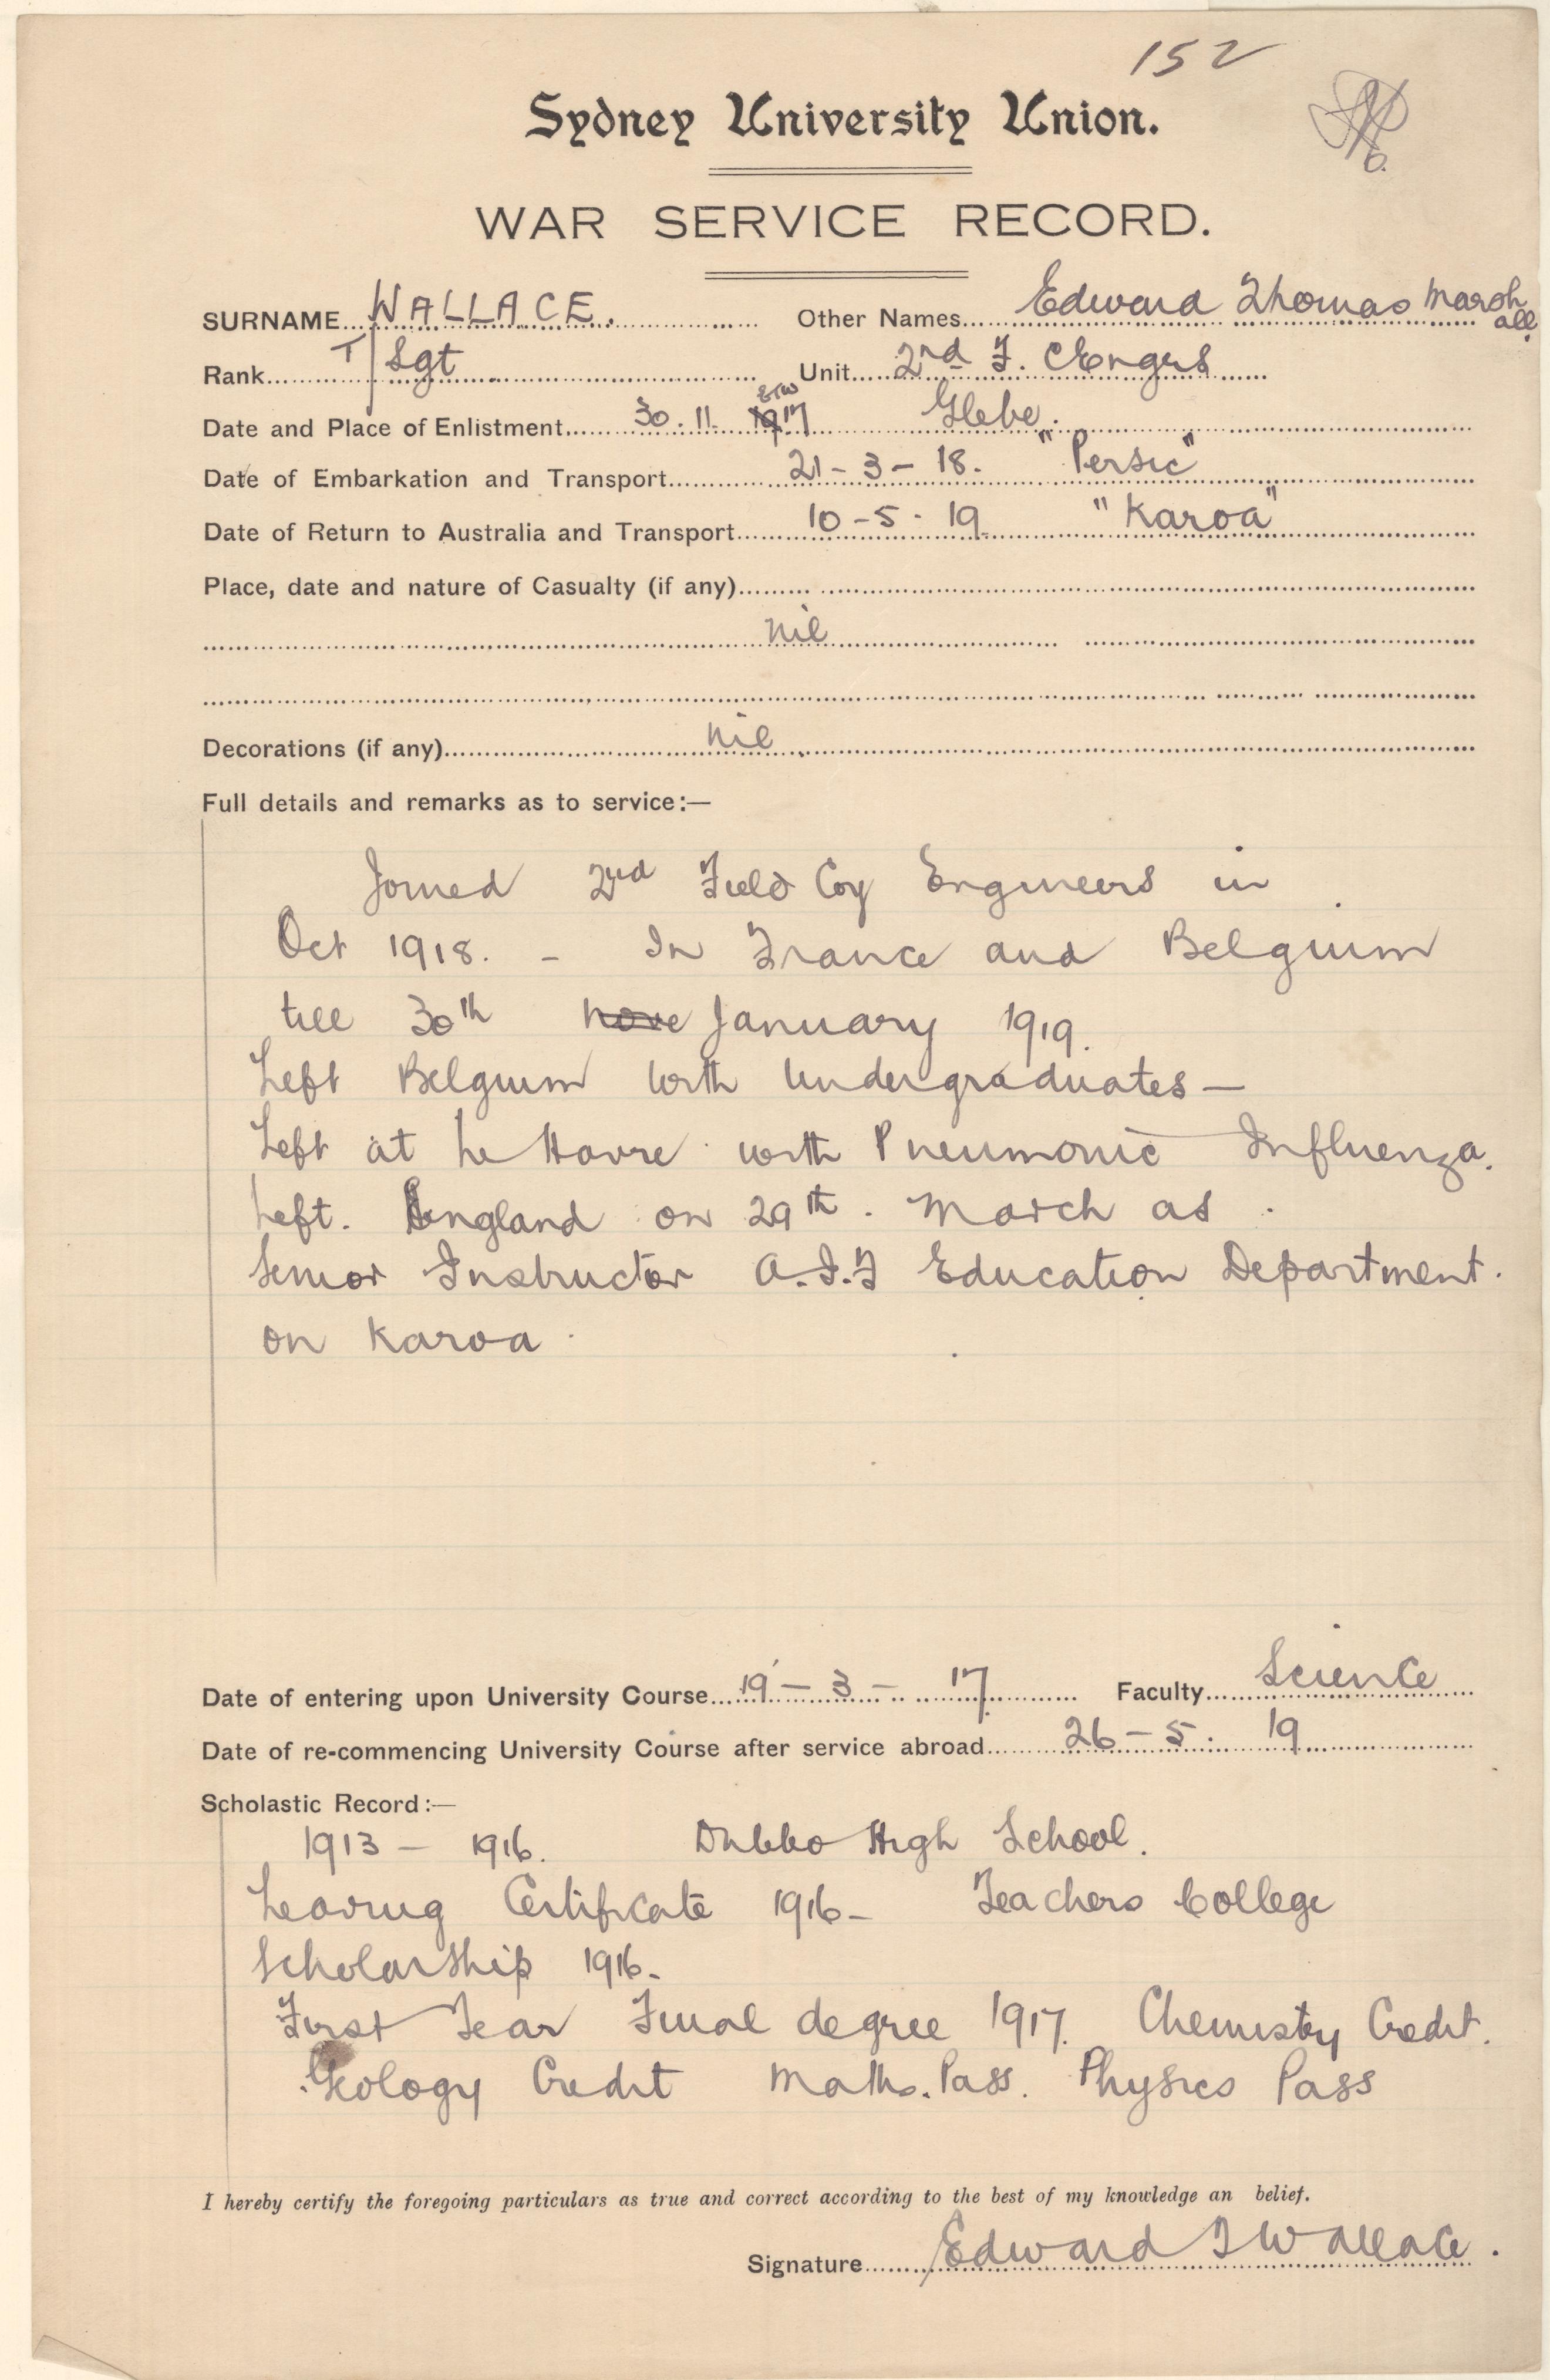 152
Sydney University Union.
WAR SERVICE RECORD.
SURNAME WALLACE. Other Names Edward Thomas Marshall.
Rank T/Sgt Unit 2nd F. C Engrs
ETW
Date and Place of Enlistment 30.11.1917 Glebe.
Date of Embarkation and Transport 21-3-18. "Persic"
Date of Return to Australia and Transport 10-5-19 "Karoa"
Place, date and nature of Casualty (if any)
nil
Decorations (if any) nil
Full details and remarks as to service:—
Joined 2nd Field Coy Engineers in
Oct 1918. - In France and Belgium
till 30th nove January 1919.
Left Belgium with Undergraduates —
Left at Le Havre with Pneumonic Influenza.
Left. England on 29th. March as
Senior Instructor A.I.F Education Department.
on Karoa
Date of entering upon University Course 19-3-17. Faculty Science
Date of re-commencing University Course after service abroad 26-5-19
Scholastic Record:—
1913 - 1916. Dubbo High School.
Leaving Certificate 1916- Teachers College
Scholarship 1916-
First Year Final degree 1917. Chemistry Credit.
Geology Credit Maths. Pass. Physics Pass
I hereby certify the foregoing particulars as true and correct according to the best of my knowledge an belief.
Signature Edward T Wallace.